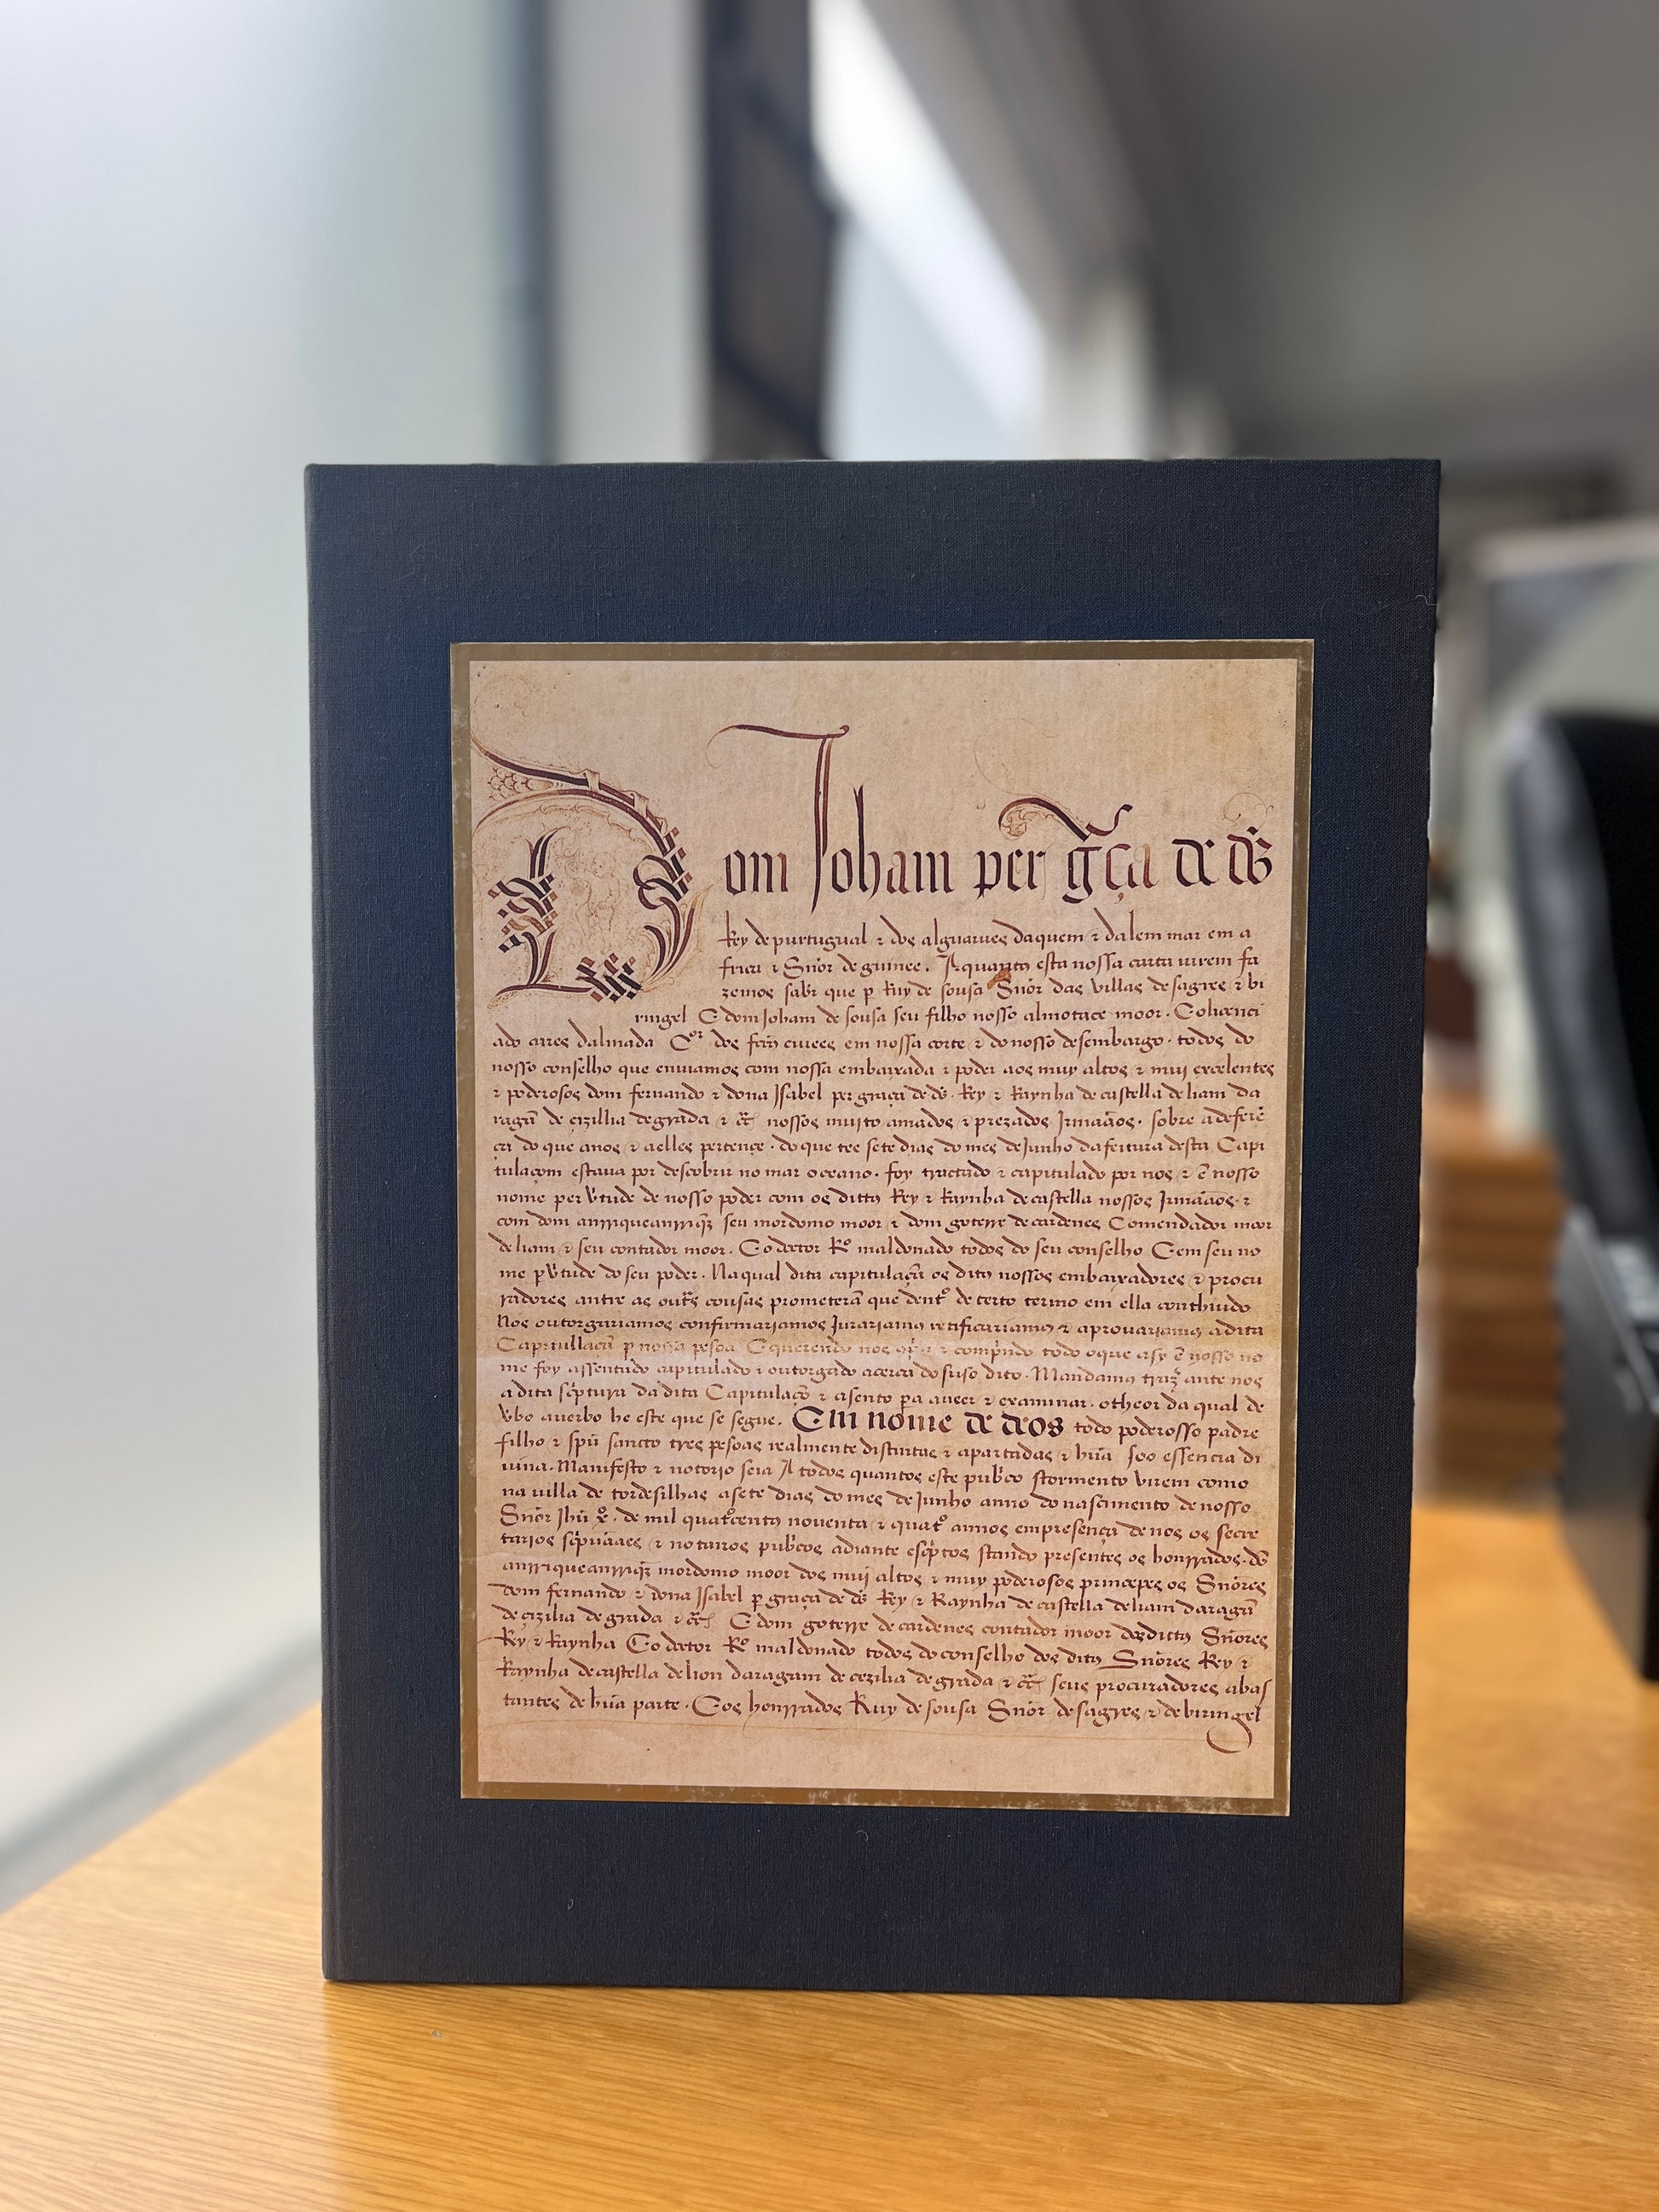 Dom Joham per g̃ça de ds̃
Rey de purtugual ⁊ dos alguarues daquem ⁊ dalem mar em a
frica ⁊ Sñor de guinee. A quantos esta nossa carta virem fa
zemos sabr̃ que p Ruy de sousa Sñor das villas de sagres ⁊ bi
ringel E dom Joham de sousa seu filho nosso almotace moor. E o licenci
ado aires dalmada Cor dos nossa corte ⁊ do nosso desembargo. todos do
nosso conselho que enuiamos com nossa embaixada ⁊ poder aos muy altos ⁊ mui excelentes
⁊ poderosos dom fernando ⁊ dona Isabel per graça de ds̃. Rey ⁊ Raynha de castella de liam da
ragã de çizillia de grada ⁊ c̃ nossos muito amados ⁊ prezados Irmaãos. sobre a deferẽ
ça do que a nos ⁊ a elles pertençe. do que tee sete dias do mes de Junho da feitura desta Capi
tulaçom estaua por descobrir no mar oceano. foy tractado ⁊ capitulado por nos ⁊ ẽ nosso
nome per v̓tude de nosso poder com os dittos Rey ⁊ Raynha de castella nossos Irmaãos. ⁊
com dom anrriqueanrriq̃z seu mordomo moor ⁊ dom goterre de cardenes Comendador moor
de liam ⁊ seu contador moor. E o doctor Ro maldonado todos do seu conselho E em seu no
me p v̓tude do seu poder. Na qual dita capitulaçã os ditos nossos embaixadores ⁊ procu
radores antre as outr̃s cousas prometerã que dentº de certo termo em ella conthiudo
Nos outorgariamos confirmariamos Jurariamos retificariamos ⁊ aprouariamos a dita
Capitullaçã p nossa pesoa E querendo nos ⁊ comp̃ndo todo o que asy ẽ nosso no
me foy assentado capitulado ⁊ outorgado acerca do suso dito. Mandamos trazer ante nos
a dita scp̃tura da dita Capitulaçõ ⁊ asento pa a veer ⁊ examinar. o theor da qual de
v̓bo a verbo he este que se segue. Em nome de deos todo poderosso padre
filho ⁊ spũ sancto tres pesoas realmente distintas ⁊ apartadas ⁊ hũa soo essencia di
uina. Manifesto ⁊ notorio seia A todos quantos este pubc̃o stormento virem como
na villa de tordesilhas a sete dias do mes de Junho anno do nascimento de nosso
Sñor Jhũ x̃º. de mil quatrc̃entos noventa ⁊ quatº annos em presença de nos os secre
tarios scp̃uãaes ⁊ notarios pubc̃os adiante escp̃tos stando presentes os honrrados. dõ
anrriqueanrriq̃z mordomo moor dos mui altos ⁊ muy poderosos principes os Sñores
dom fernando ⁊ dona Isabel p graça de ds̃ Rey ⁊ Raynha de castella de liam daragã
de çizilia de grada ⁊ c̃ E dom goterre de cardenes contador moor dos dittos Sñores
Rey ⁊ Raynha E o doctor Ro maldonado todos do conselho dos ditos Sñores Rey ⁊
Raynha de castella de lion daragam de cezilia de grada ⁊ c̃ seus procuradores abas
tantes de hũa parte. E os honrrados Ruy de sousa Sñor de sagres ⁊ de biringel